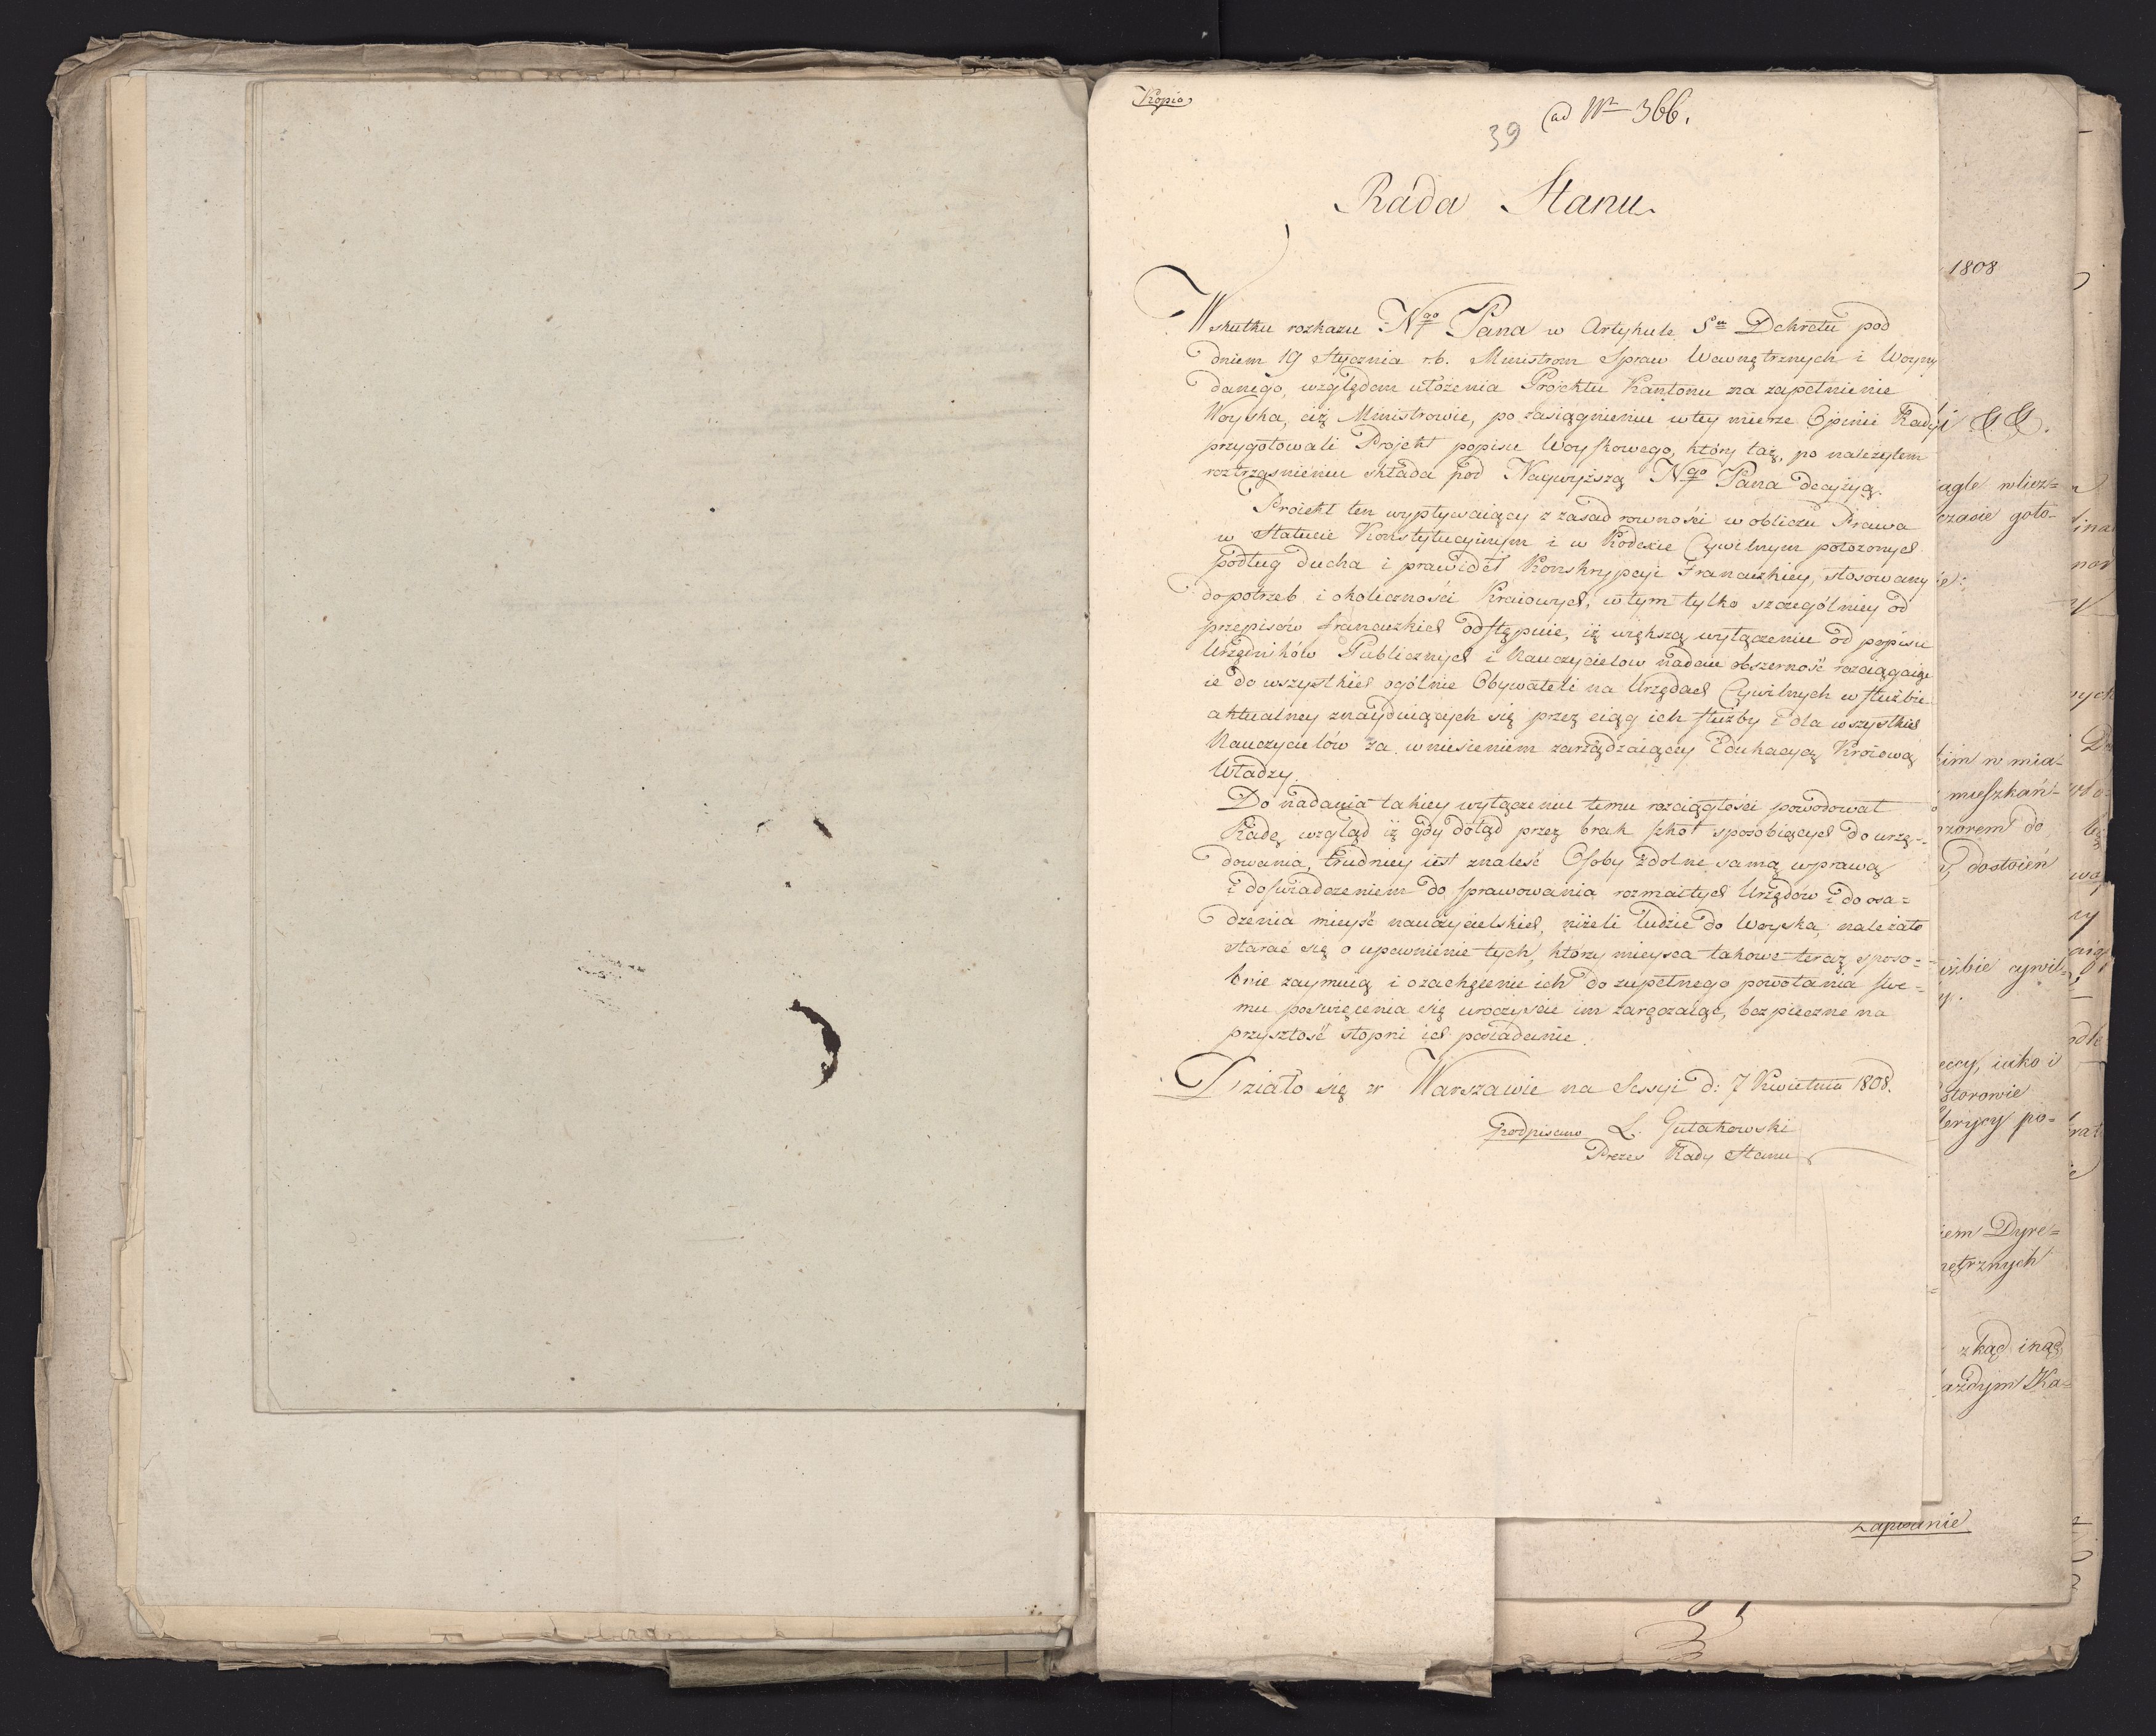 Kopia
ad Nr 366.
39
Rada Stanu
Wskutku rozkazu Nego Pana w Artykule 5m Dekretu pod
dniem 19 Stycznia r.b. Ministrom Spraw Wewnętrznych i Woyny
danego, względem ułożenia Projektu Kantonu na zapełnienie
Woyska, ciż Ministrowie, po zasiągnieniu wtey mierze Opinii Rady
przygotowali Projekt popisu Woyskowego, który taż, po należytem
roztrząśnieniu składa pod Naywyższą Nego Pana decyzyą.
Proiekt ten wypływaiący z zasad rowności w obliczu Prawa
w Statucie Konstytucyinym i w Kodexie Cywilnym położonych
podług ducha i prawideł Konskrypcyi Francuzkiey, stosowany
do potrzeb i okoliczności Kraiowych, wtym tylko szczególniey od
przepisów francuzkich odstępuie, iż większą wyłączeniu od popisu
Urzędników Publicznych i Nauczycielow nadaie obszerność rozciągaiąc
ie do wszystkich ogólnie Obywateli na Urzędach Cywilnych w służbie
aktualney znayduiących się przez ciąg ich służby i dla wszystkich
Nauczycielów za wniesieniem zarządzaiącey Edukacyą Kraiową
Władzy.
Do nadania takiey wyłączeniu temu rozciągłości powodował
Radę wzgląd iż gdy dotąd przez brak szkół sposobiących do urzę-
dowania, trudniey iest znaleść Osoby zdolne samą wprawą
i doświadczeniem do sprawowania rozmaitych Urzędów i do osa=
dzenia mieysc nauczycielskich, niżeli ludzie do Woyska; należało
starać się o upewnienie tych, którzy mieysca takowe teraz sposo=
bnie zaymuią i ozachęcenie ich do zupełnego powołania swe=
mu poswięcenia się uroczyscie im zaręczaiąc, bezpieczne na
przyszłość stopni ich posiadanie.
Działo się w Warszawie na Sessyi d: 7 Kwietnia 1808.
podpisano L. Gutakowski
Prezes Rady Stanu
1808
mieszkań-
do
dostoień
iako i
po=
Dyre=
zkąd inąd
Zapisanie